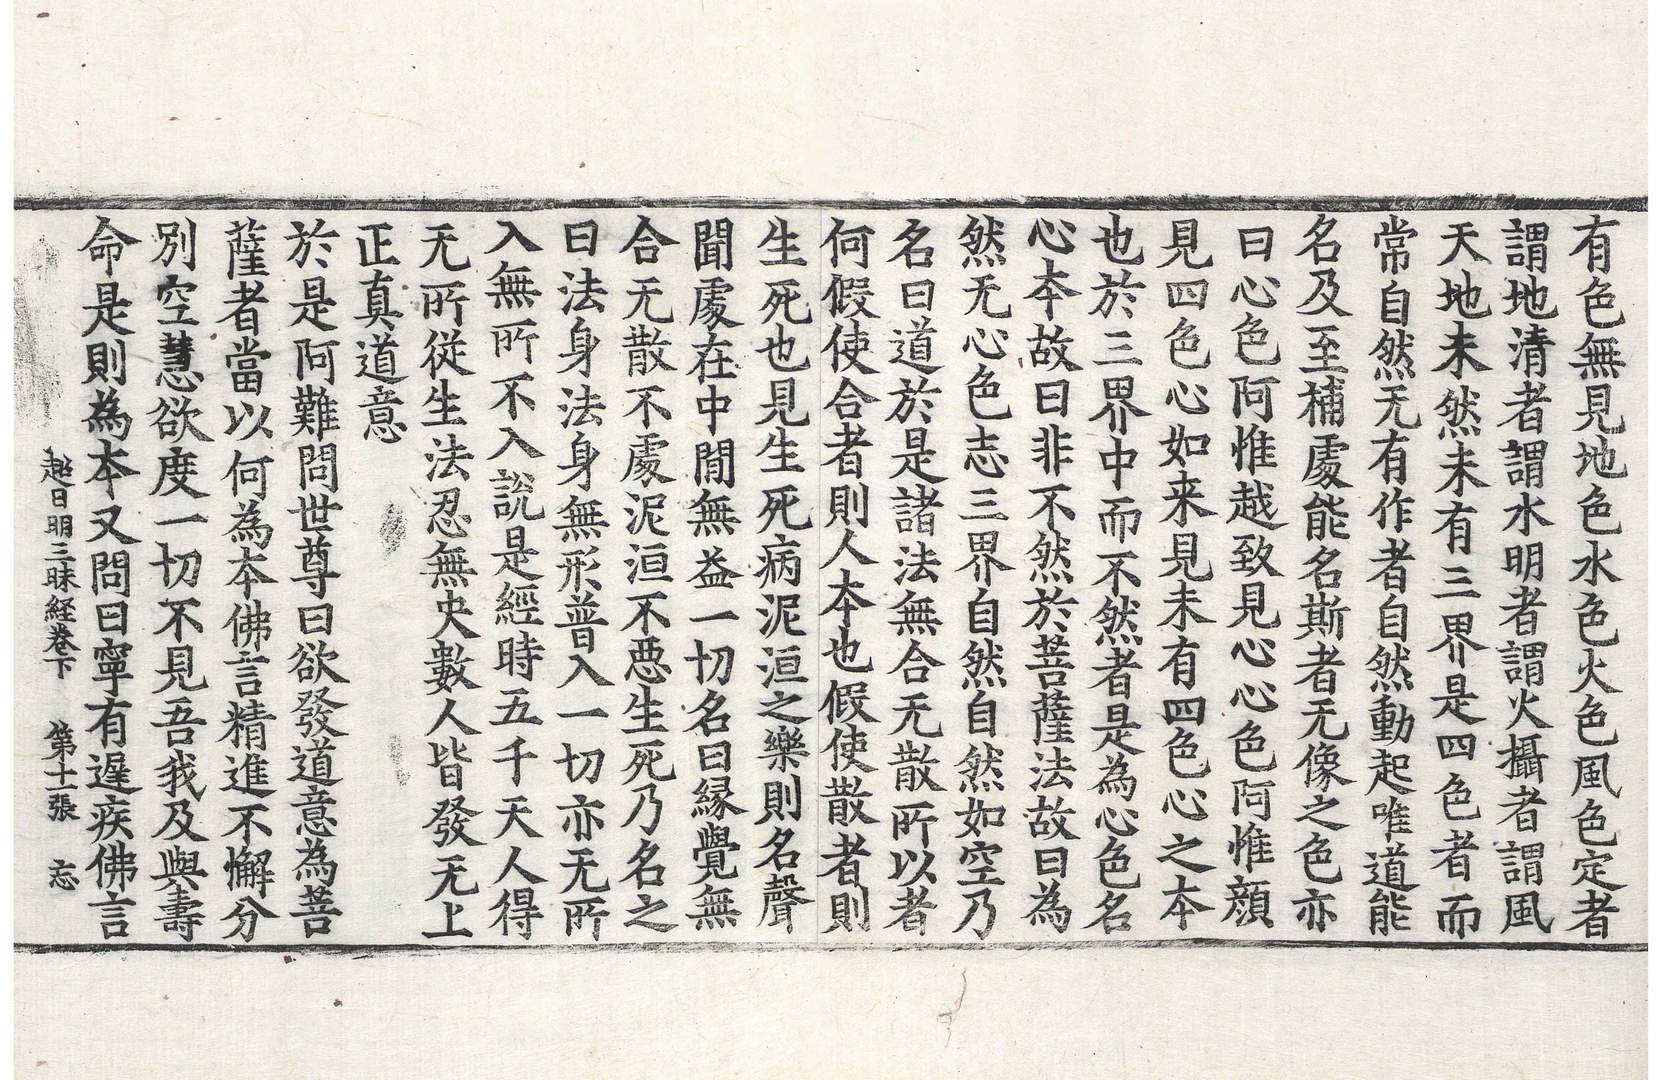 有色無見地色水色火色風色定者
謂地清者謂水明者謂火攝者謂風
天地未然未有三界是四色者而
常自然无有作者自然動起唯道能
名及至補處能名斯者无像之色亦
曰心色阿惟越致見心心色阿惟顔
見四色心如来見未有四色心之本
也於三界中而不然者是為心色名
心本故曰非不然於菩薩法故曰為
然无心色志三界自然自然如空乃
名曰道於是諸法無合无散所以者
何假使合者則人本也假使散者則
生死也見生死病泥洹之樂則名聲
聞處在中閒無益一切名曰縁覺無
合无散不處泥洹不惡生死乃名之
曰法身法身無形普入一切亦无所
入無所不入說是經時五千天人得
无所從生法忍無央數人皆發无上
正真道意
於是阿難問世尊曰欲發道意為菩
薩者當以何為本佛言精進不懈分
別空慧欲度一切不見吾我及與壽
命是則為本又問曰寧有遲疾佛言
超日明三昧経卷下 第十二張 忘